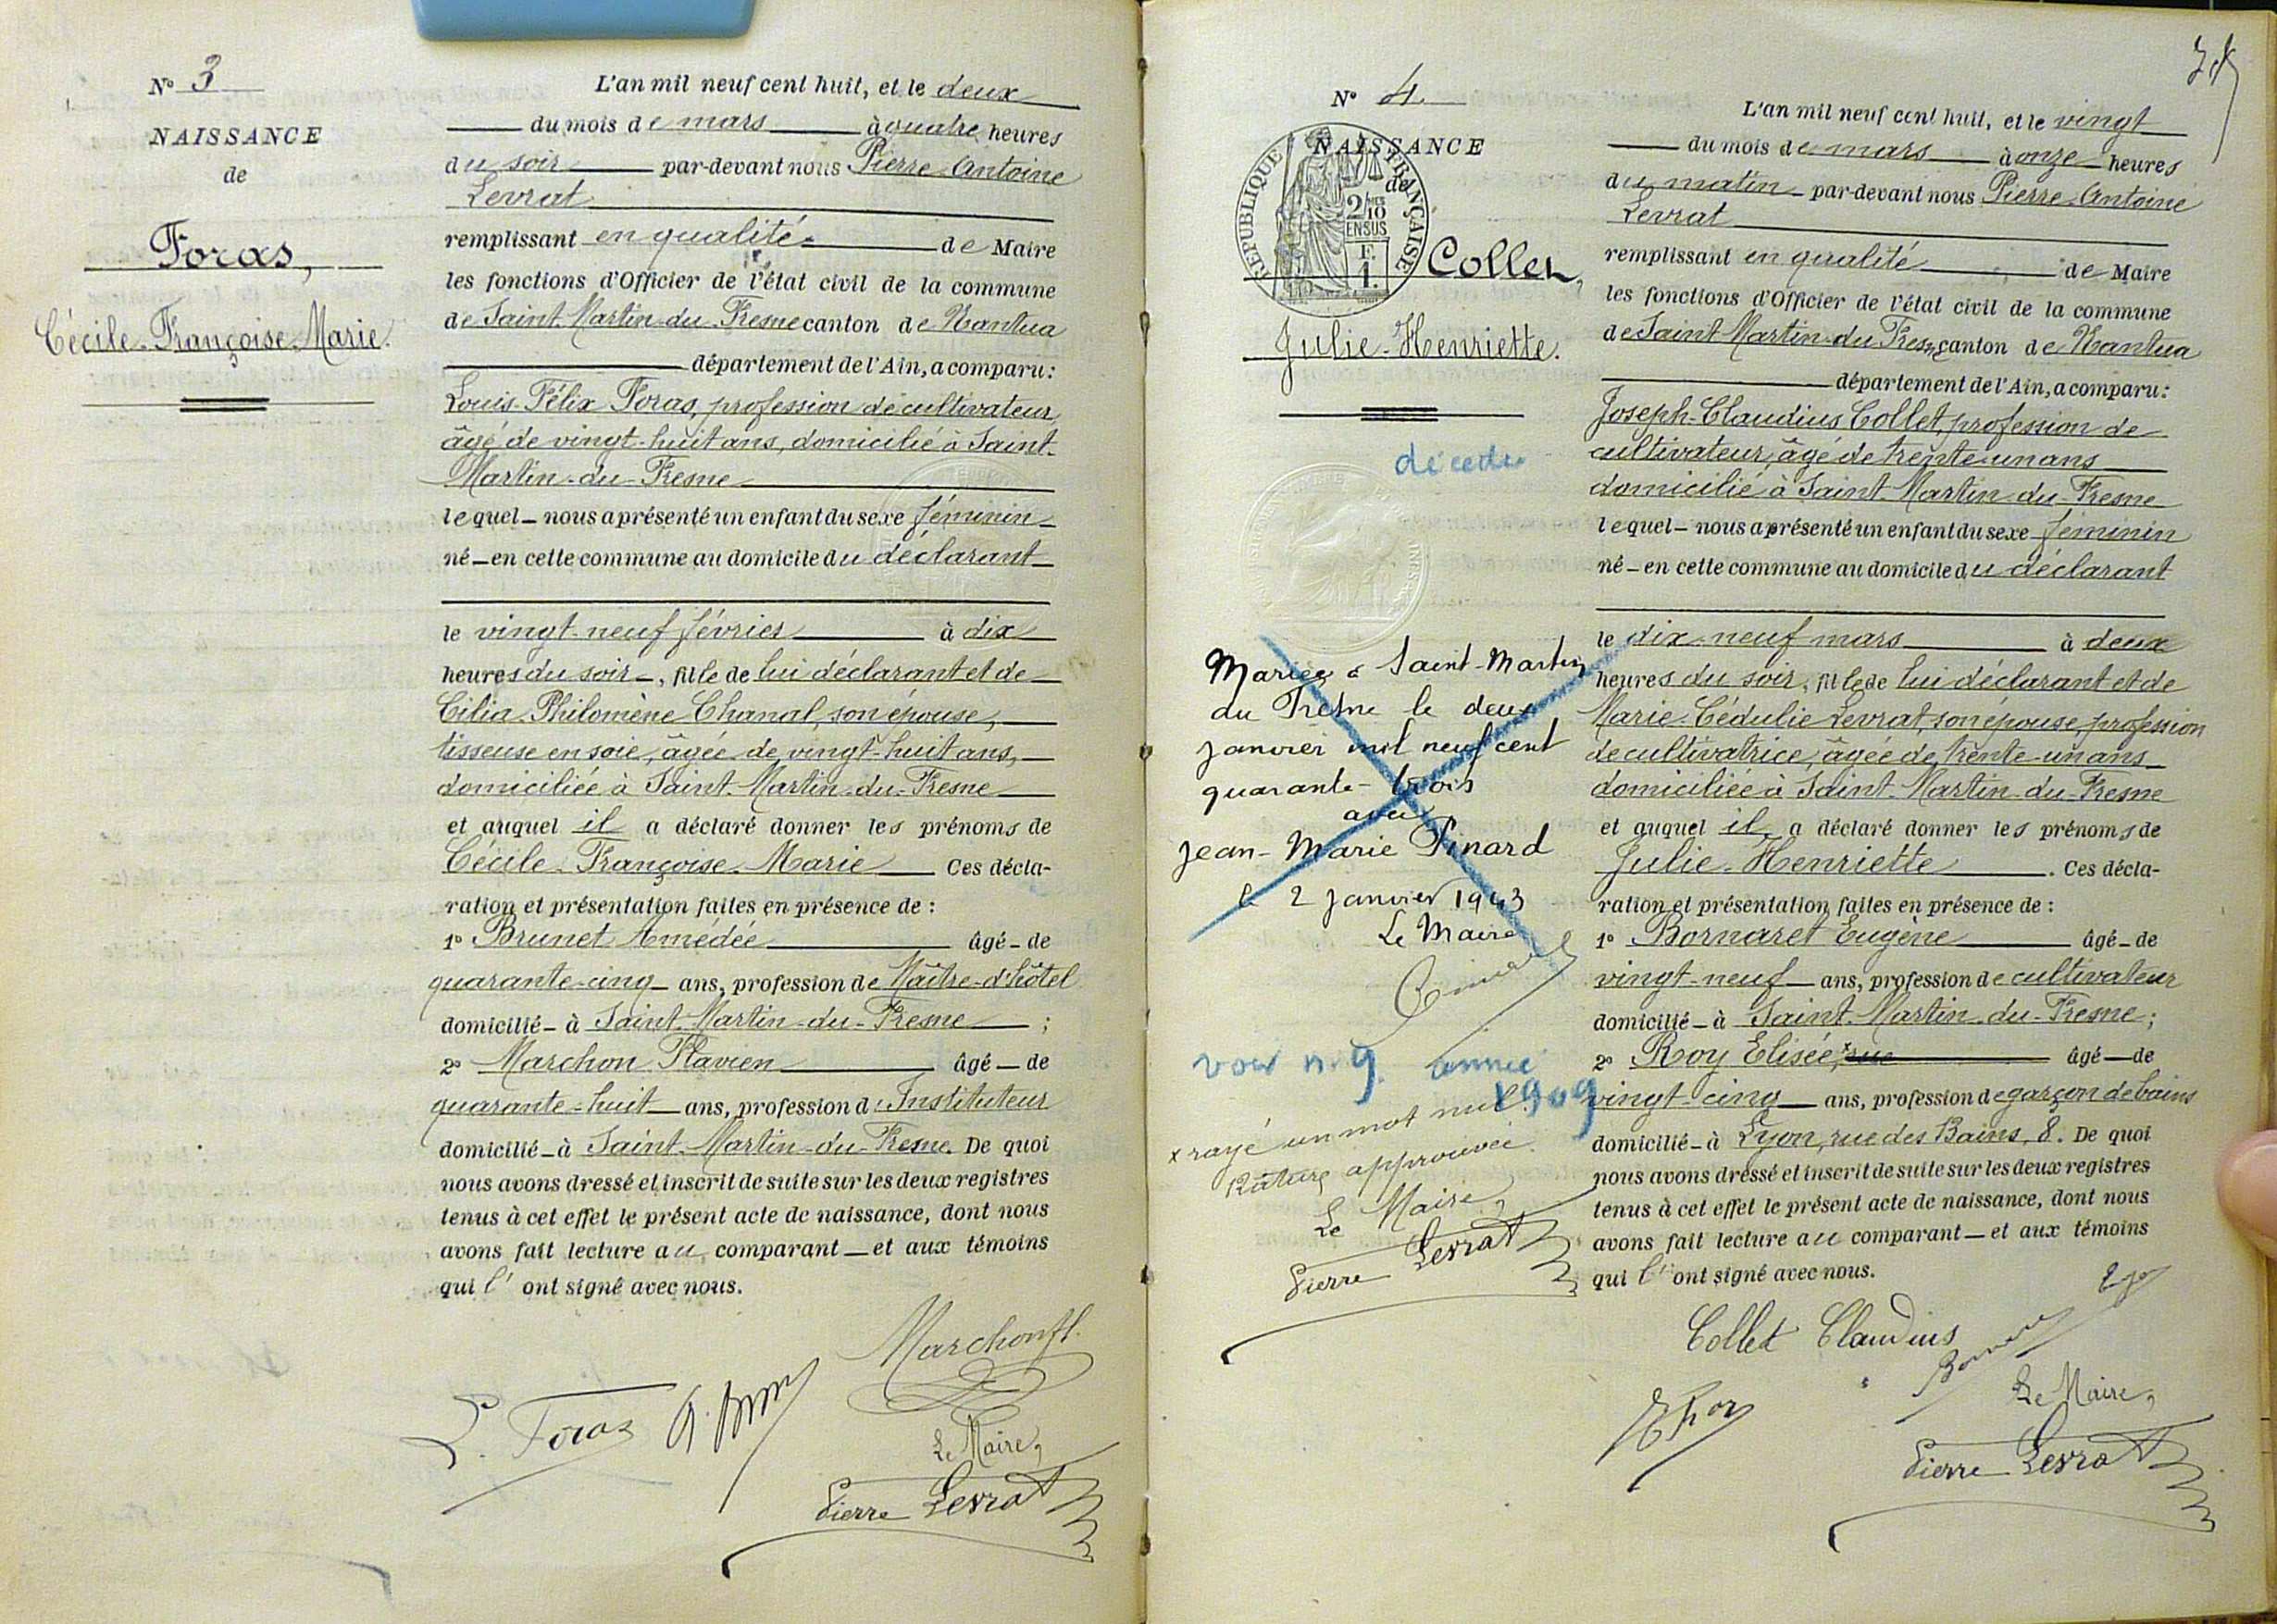 N° 3
NAISSANCE
de
Foras,
Cécile-Françoise-Marie.
L'an mil neuf cent huit, et le deux
du mois de mars à quatre heures
du soir par-devant nous Pierre-Antoine
Levrat
remplissant en qualité de Maire
les fonctions d'Officier de l'état civil de la commune
de Saint-Martin-du-Fresne canton de Nantua
département de l'Ain, a comparu:
Louis-Félix Foras, profession de cultivateur,
âgé de vingt-huit ans, domicilié à Saint-
Martin-du-Fresne
lequel nous a présenté un enfant du sexe féminin
né en cette commune au domicile du déclarant
le vingt-neuf février à dix
heures du soir, fille de lui déclarant et de
Cilia-Philomène Chanal, son épouse,
tisseuse en soie, âgée de vingt-huit ans,
domiciliée à Saint-Martin-du-Fresne
et auquel il a déclaré donner les prénoms de
Cécile-Françoise-Marie Ces décla-
ration et présentation faites en présence de :
1° Brunet Amédée âgé de
quarante-cinq ans, profession de Maître-d'hôtel
domicilié à Saint-Martin-du-Fresne ;
2° Marchon Flavien âgé de
quarante-huit ans, profession d'Instituteur
domicilié à Saint-Martin-du-Fresne. De quoi
nous avons dressé et inscrit de suite sur les deux registres
tenus à cet effet le présent acte de naissance, dont nous
avons fait lecture au comparant et aux témoins
qui l'ont signé avec nous.
Marchon fl.
L. Foras
Le Maire,
Pierre Levrat
N° 4
NAISSANCE
de
RÉPUBLIQUE FRANÇAISE
2/10
EN SUS
F.
1.
Collet,
Julie-Henriette.
décédée
Mariée à Saint-Martin
du Fresne le deux
janvier mil neuf cent
quarante-trois
avec
Jean-Marie Pinard
le 2 janvier 1943
Le Maire
voir n. 9. année
1909
x rayé un mot nul.
Rature approuvée.
Le Maire,
Pierre Levrat
L'an mil neuf cent huit, et le vingt
du mois de mars à onze heures
du matin par-devant nous Pierre-Antoine
Levrat
remplissant en qualité de Maire
les fonctions d'Officier de l'état civil de la commune
de Saint-Martin-du-Fresne canton de Nantua
département de l'Ain, a comparu:
Joseph-Claudius Collet, profession de
cultivateur, âgé de trente-un ans
domicilié à Saint-Martin-du-Fresne
lequel nous a présenté un enfant du sexe féminin
né en cette commune au domicile du déclarant
le dix-neuf mars à deux
heures du soir, fille de lui déclarant et de
Marie-Cédulie Levrat, son épouse, profession
de cultivatrice, âgée de trente-un ans
domiciliée à Saint-Martin-du-Fresne
et auquel il a déclaré donner les prénoms de
Julie-Henriette. Ces décla-
ration et présentation faites en présence de :
1° Bornaret Eugène âgé de
vingt-neuf ans, profession de cultivateur
domicilié à Saint-Martin-du-Fresne ;
2° Roy Elisée, x rue âgé de
vingt-cinq ans, profession de garçon de bains
domicilié à Lyon, rue des Bains, 8. De quoi
nous avons dressé et inscrit de suite sur les deux registres
tenus à cet effet le présent acte de naissance, dont nous
avons fait lecture au comparant et aux témoins
qui l'ont signé avec nous.
Collet Claudius
Le Maire,
Pierre Levrat